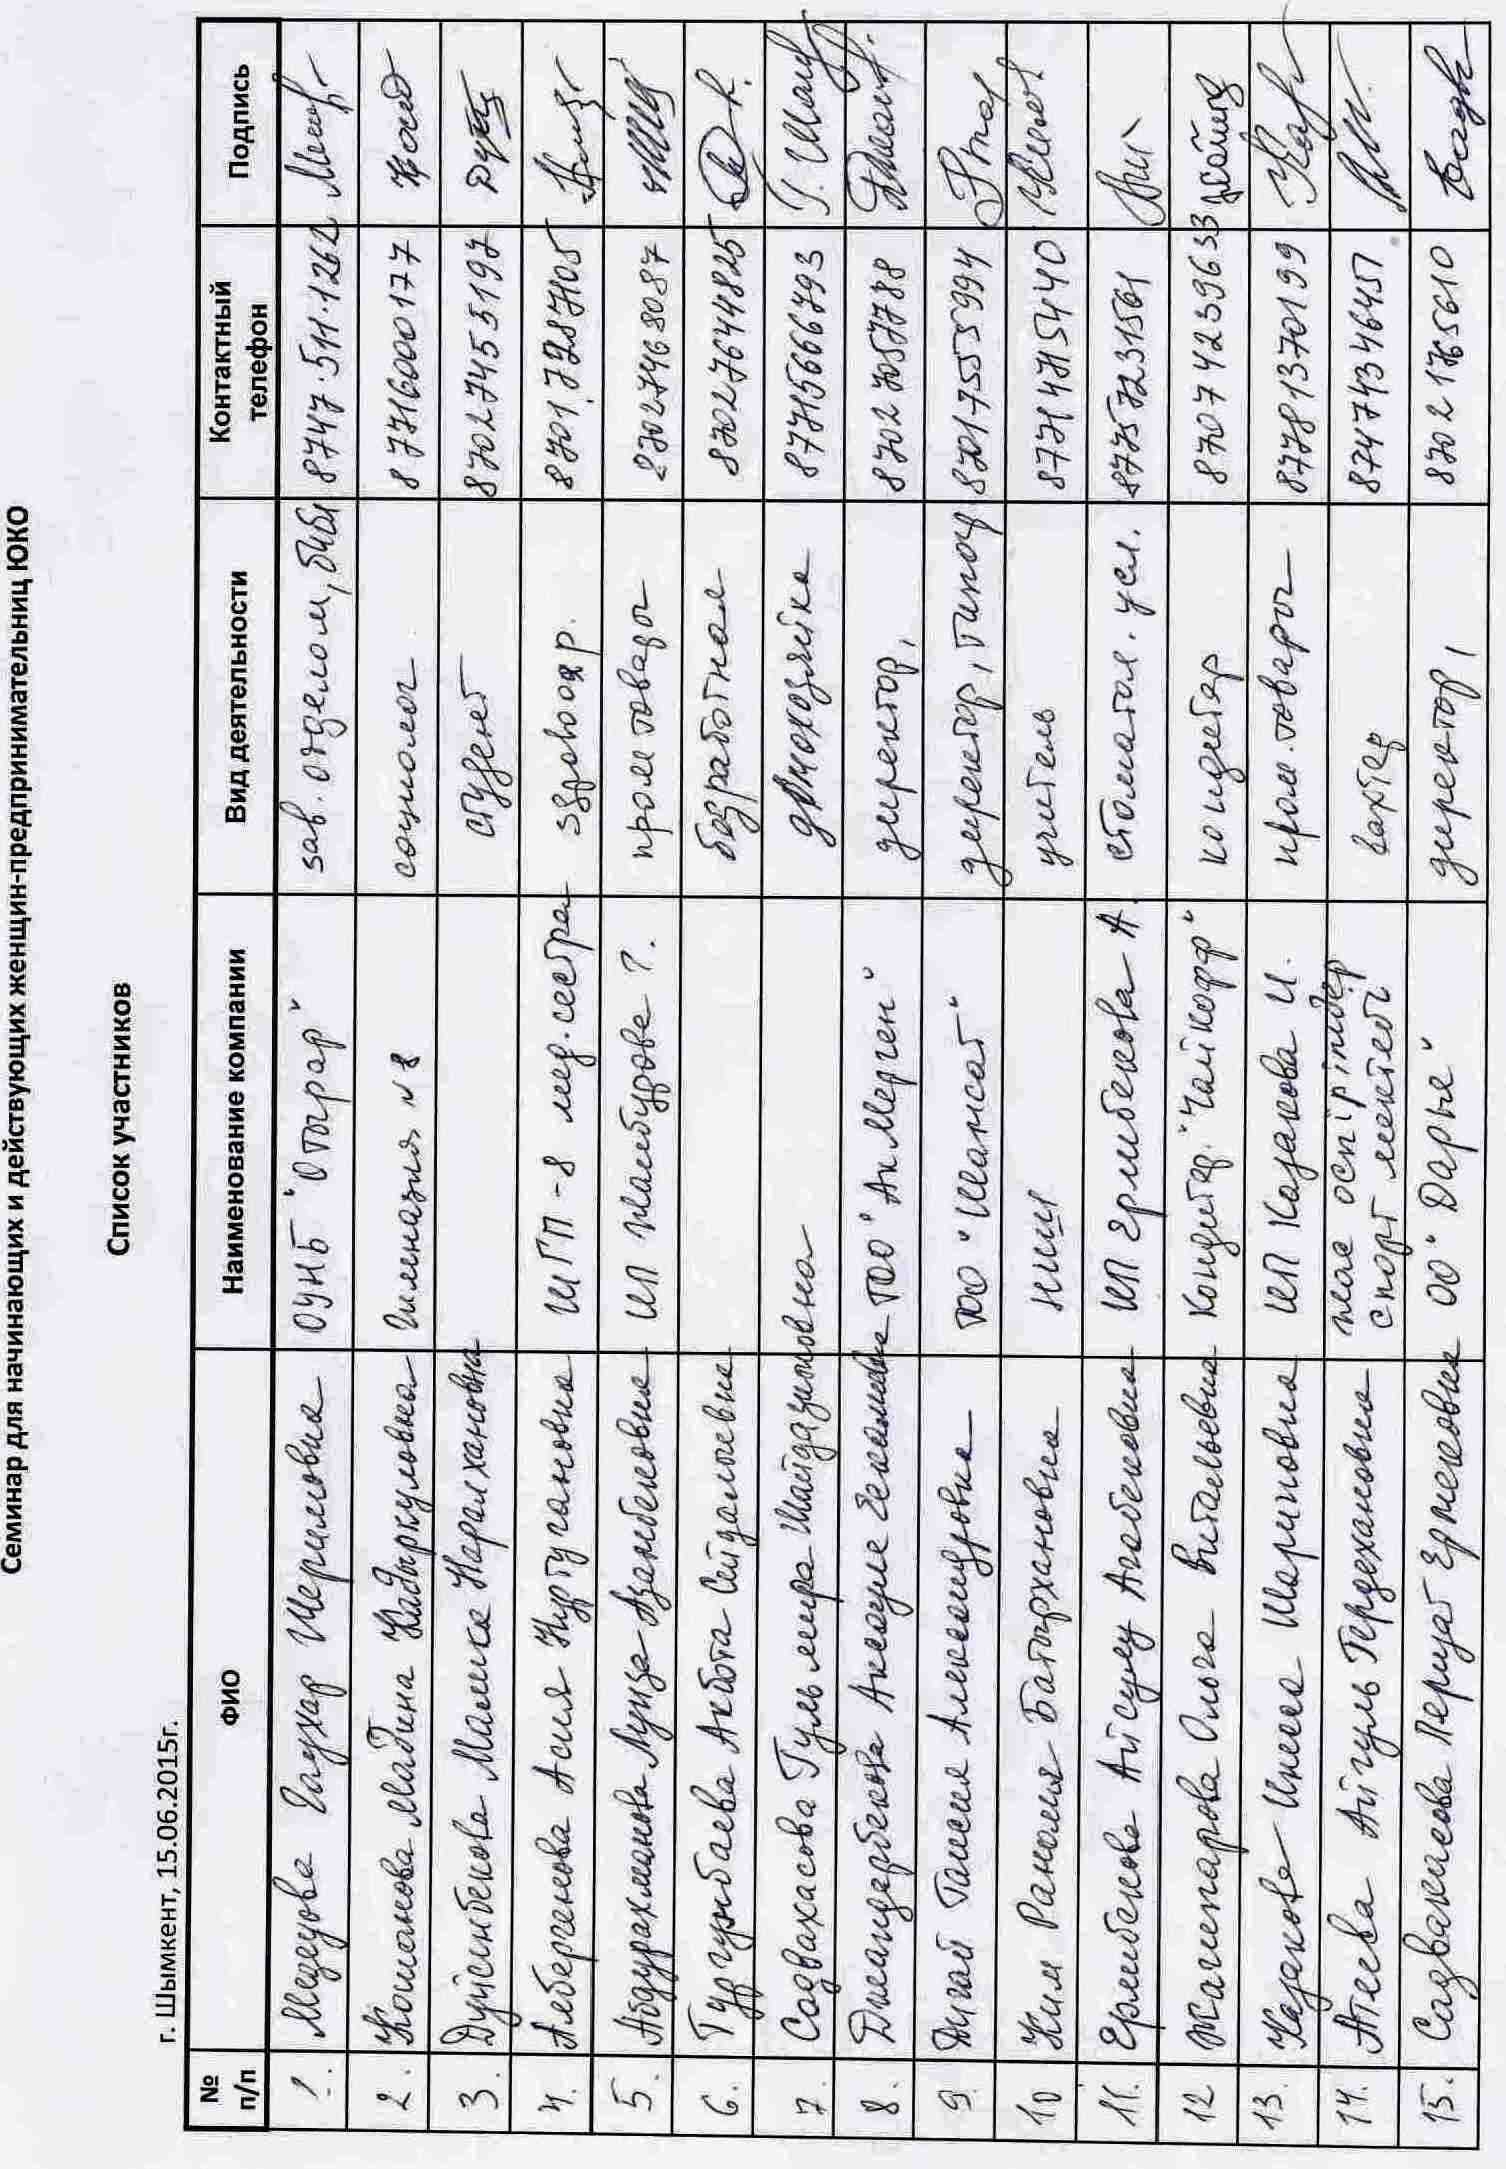 Семинар для начинающих и действующих женщин-предпринимательниц ЮКО
Список участников
г. Шымкент, 15.06.2015г.
№ п/п ФИО Наименование компании Вид деятельности Контактный телефон Подпись
1. Гаухар Шериловна ОУНБ "Отырар" зав. отделом, библ 8747.511.1262
2. Кошанова Мадина Кадыркуловна Гимназия №8 социолог 87716000177
3. Дуйсенбекова Малика Наралхановна студент 87027455197
4. Албергенова Асия Нуртугановна ШГП-8 мед.сестра здравоохр. 87017287105
5. Абдурахманова Луиза Азамбековна ИП пром товары 87027468087
6. Тургунбаева Акбота Сейдалыевна безработная 87027644825
7. Садвахасова Гульмира Шайдазимовна домохозяйка 87715666793
8. Дильмандарбекова Аксауле ТОО "Ак Мерген" директор, 87027057788
9. Дугай Таисия Александровна ТОО "Шансат" директор, 87017555994
10 Ким Рановия Батырхановна НИШ учитель 87714715440
11. Ермбекова Айсулу Агабековна ИП Ермбекова А. стоматол. усл. 87757231561
12 Жаппарова Ольга Витальевна Кондитер. "Чайкофф" кондитер 87074239633
13. Казакова Инесса Шариповна ИП Казакова И. пром. товары 87781370199
14. Атеева Айгуль Гердехановна жас өспірімдер спорт мектебі вахтер 87474346451
15. Садвакасова Перизат Ермековна ОО "Дарье" директор, 87021765610